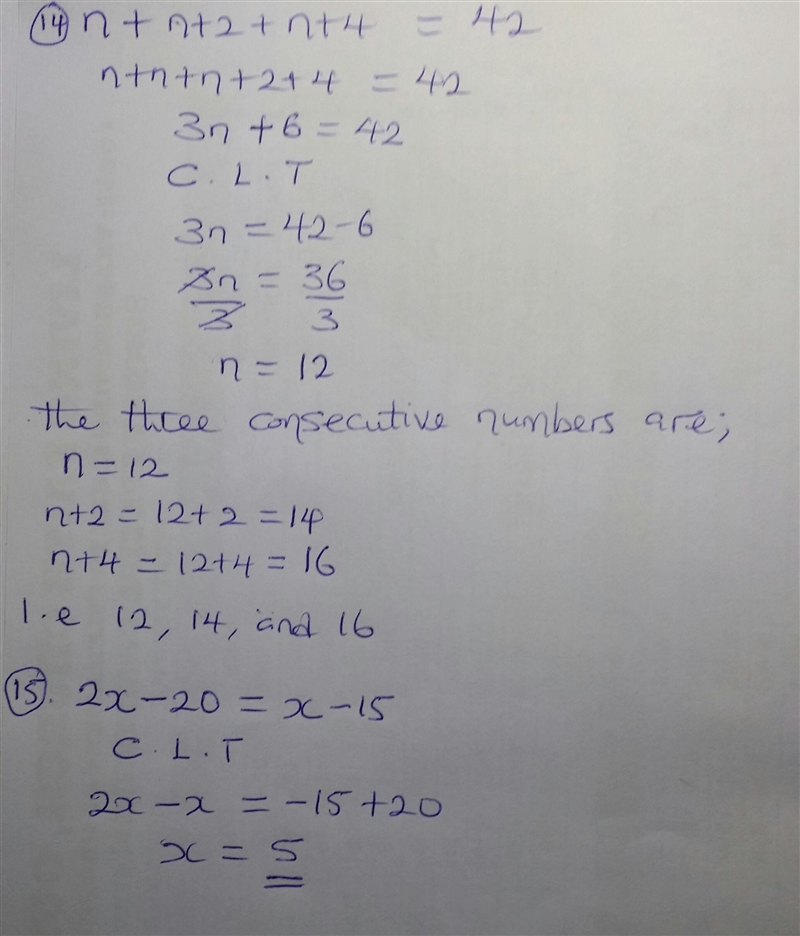 (14) n + n+2 + n+4 = 42
n+n+n+2+4 = 42
3n + 6 = 42
C. L. T
3n = 42-6
3n/3 = 36/3
n = 12
the three consecutive numbers are;
n = 12
n+2 = 12+2 = 14
n+4 = 12+4 = 16
I.e 12, 14, and 16
(15). 2x - 20 = x - 15
C. L. T
2x - x = -15 + 20
x = 5